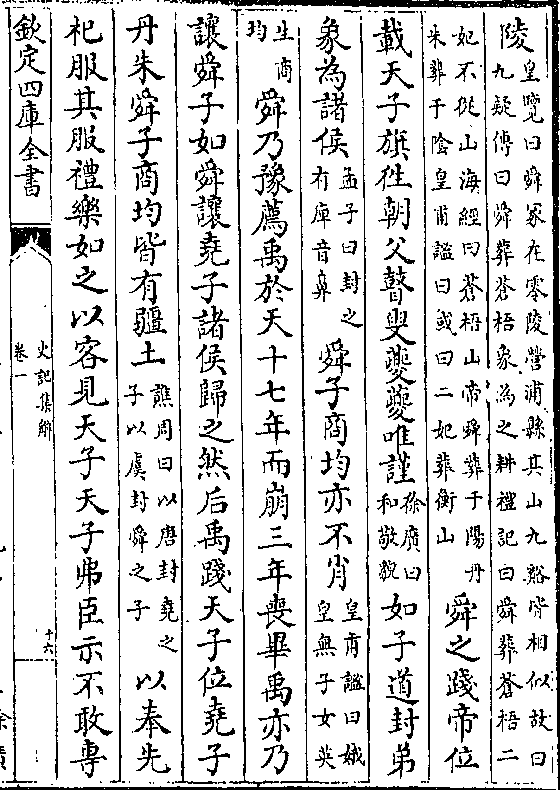 陵皇覽曰舜冢在零陵營浦縣其山九谿皆相似故曰
九疑傳曰舜葬蒼梧象為之耕禮記曰舜葬蒼梧二
妃不從山海經曰蒼梧山帝舜葬于陽丹
朱葬于陰皇甫謐曰或曰二妃葬衡山舜之踐帝位
載天子旗徃朝父瞽叟夔夔唯謹徐廣曰和敬貌如子道封弟
象為諸侯孟子曰封之有庳音鼻舜子商均亦不肖皇甫謐曰娥皇無子女英
生商均舜乃豫薦禹於天十七年而崩三年喪畢禹亦乃
讓舜子如舜讓堯子諸侯歸之然后禹踐天子位堯子
丹朱舜子商均皆有疆土譙周曰以唐封堯之子以虞封舜之子以奉先
祀服其服禮樂如之以客見天子天子弗臣示不敢專
欽定四庫全書
史記集解
卷一
十六